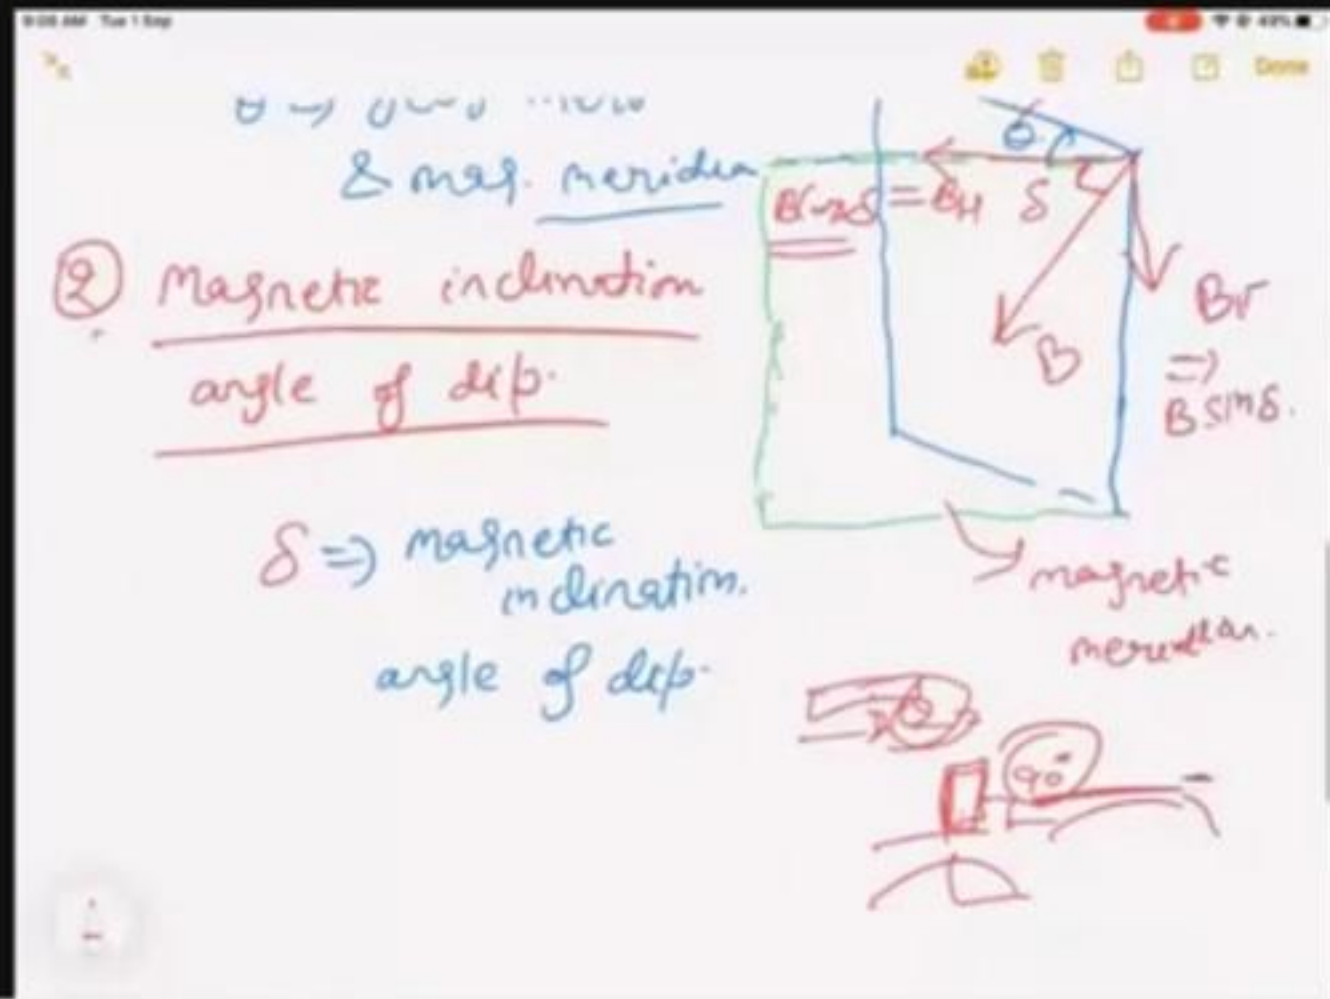 9:08 AM Tue 1 Sep
49%
Done
θ →
& mag. meridian
② Magnetic inclination
angle of dip.
δ => magnetic
inclination.
angle of dip.
θ
= BH δ
B
Bv
=>
B sin δ.
magnetic
meridian.
90°